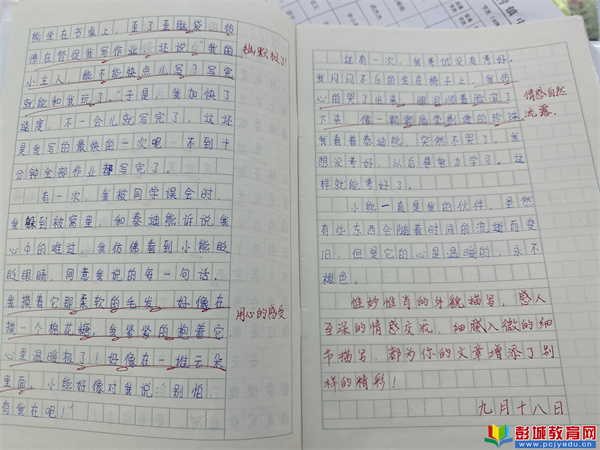 熊坐在书桌上，歪了歪脑袋，仿
佛在督促我写作业，还说："我的
小主人，能不能快点儿写？写完
就能和我玩了。"于是，我加快了
速度，不一会儿就写完了，这还
是我写的最快的一次呢，不到十
分钟全部作业都写完了。
有一次，我被同学误会时，
我躲到被窝里，和泰迪熊诉说我
心中的难过，我仿佛看到小熊眨
眨眼睛，同意我说的每一句话。
我摸着它那柔软的毛发，好像在
摸一个棉花糖，我紧紧的抱着它，
心里温暖极了！好像在一堆云朵
里面，小熊好像对我说："别怕，
有我在呢！"
幽默极了！
用心的感受
还有一次，我考试没有考好，
我闷闷不乐的坐在椅子上，我伤
心的哭了出来，眼泪顺着脸流了
下来，像一颗颗
的珍珠，
我看着泰迪熊，突然不哭了，我
想没考好，以后要努力学习，这
样就能考好了。
小熊一直是我的伙伴，虽然
有些东西会随着时间的流逝而变
旧，但是它的心是温暖的，永不
褪色。
情感自然
流露。
惟妙惟肖的外貌描写，感人
至深的情感交流，细腻入微的细
节描写，都为你的文章增添了别
样的精彩！
九月十八日
彭城教育网
www.pcjyedu.com